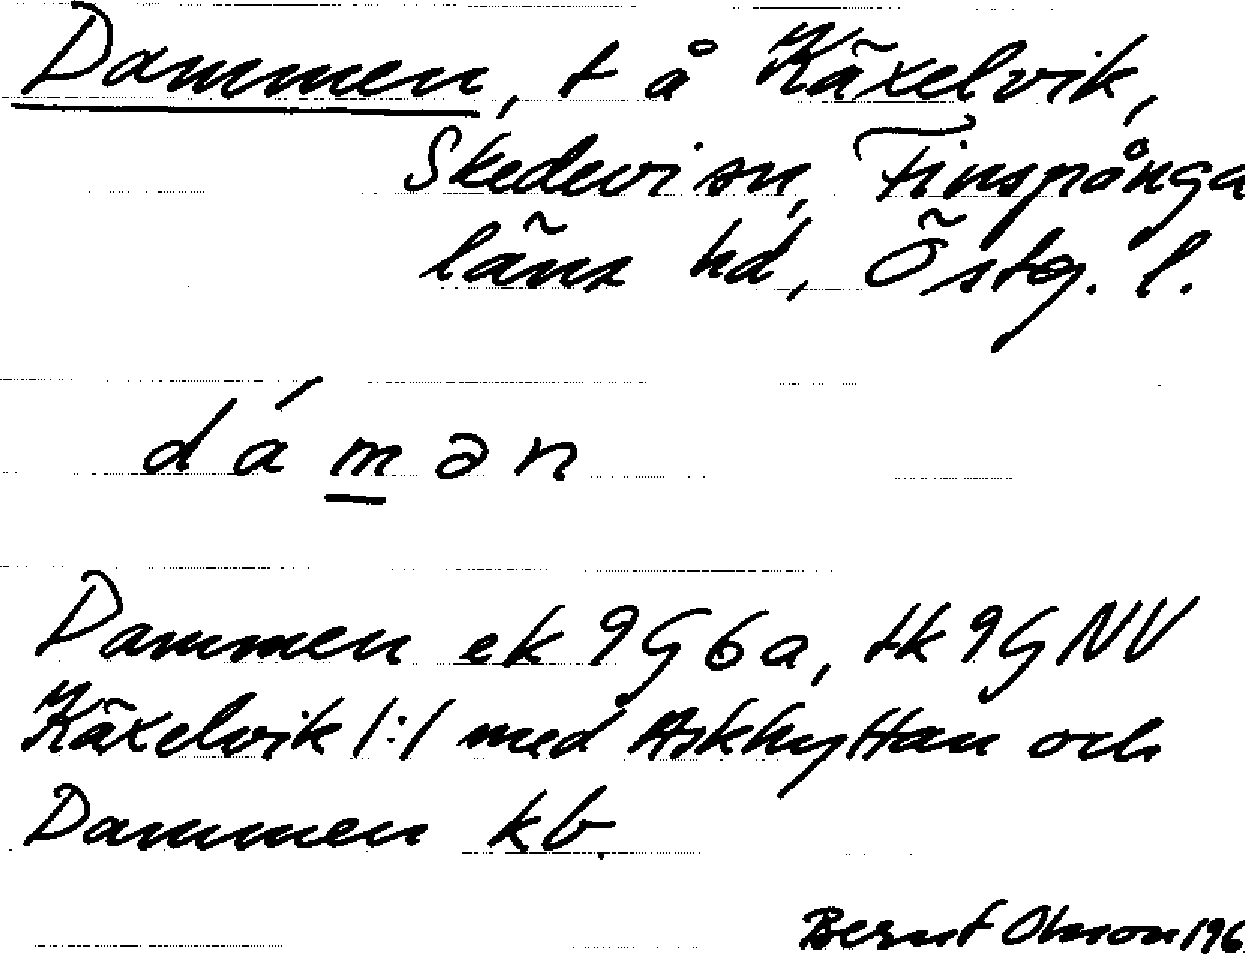 Dammen, t å Käxelvik,
Skedevi sn, Finspånga
läns hd, Östg. l.
dámən
Dammen ek 9G6a, tk 9GNV
Käxelvik 1:1 med Askhyttan och
Dammen kb.
Bernt Olsson 196